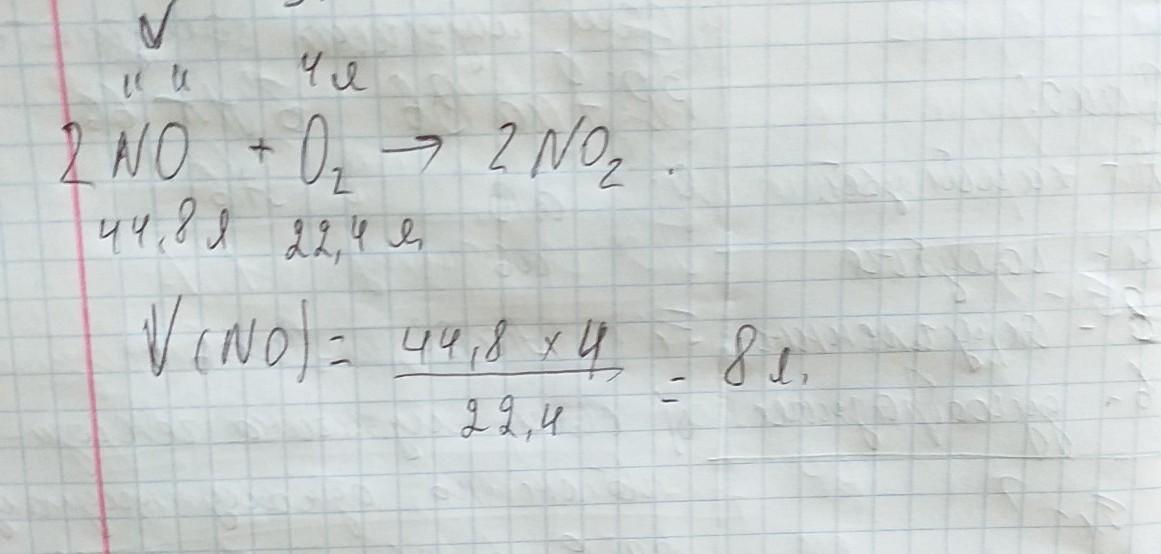 V
" " 4 л
2 NO + O₂ → 2 NO₂.
44,8 л 22,4 л,
V(NO) = 44,8 × 4 / 22,4 = 8 л.